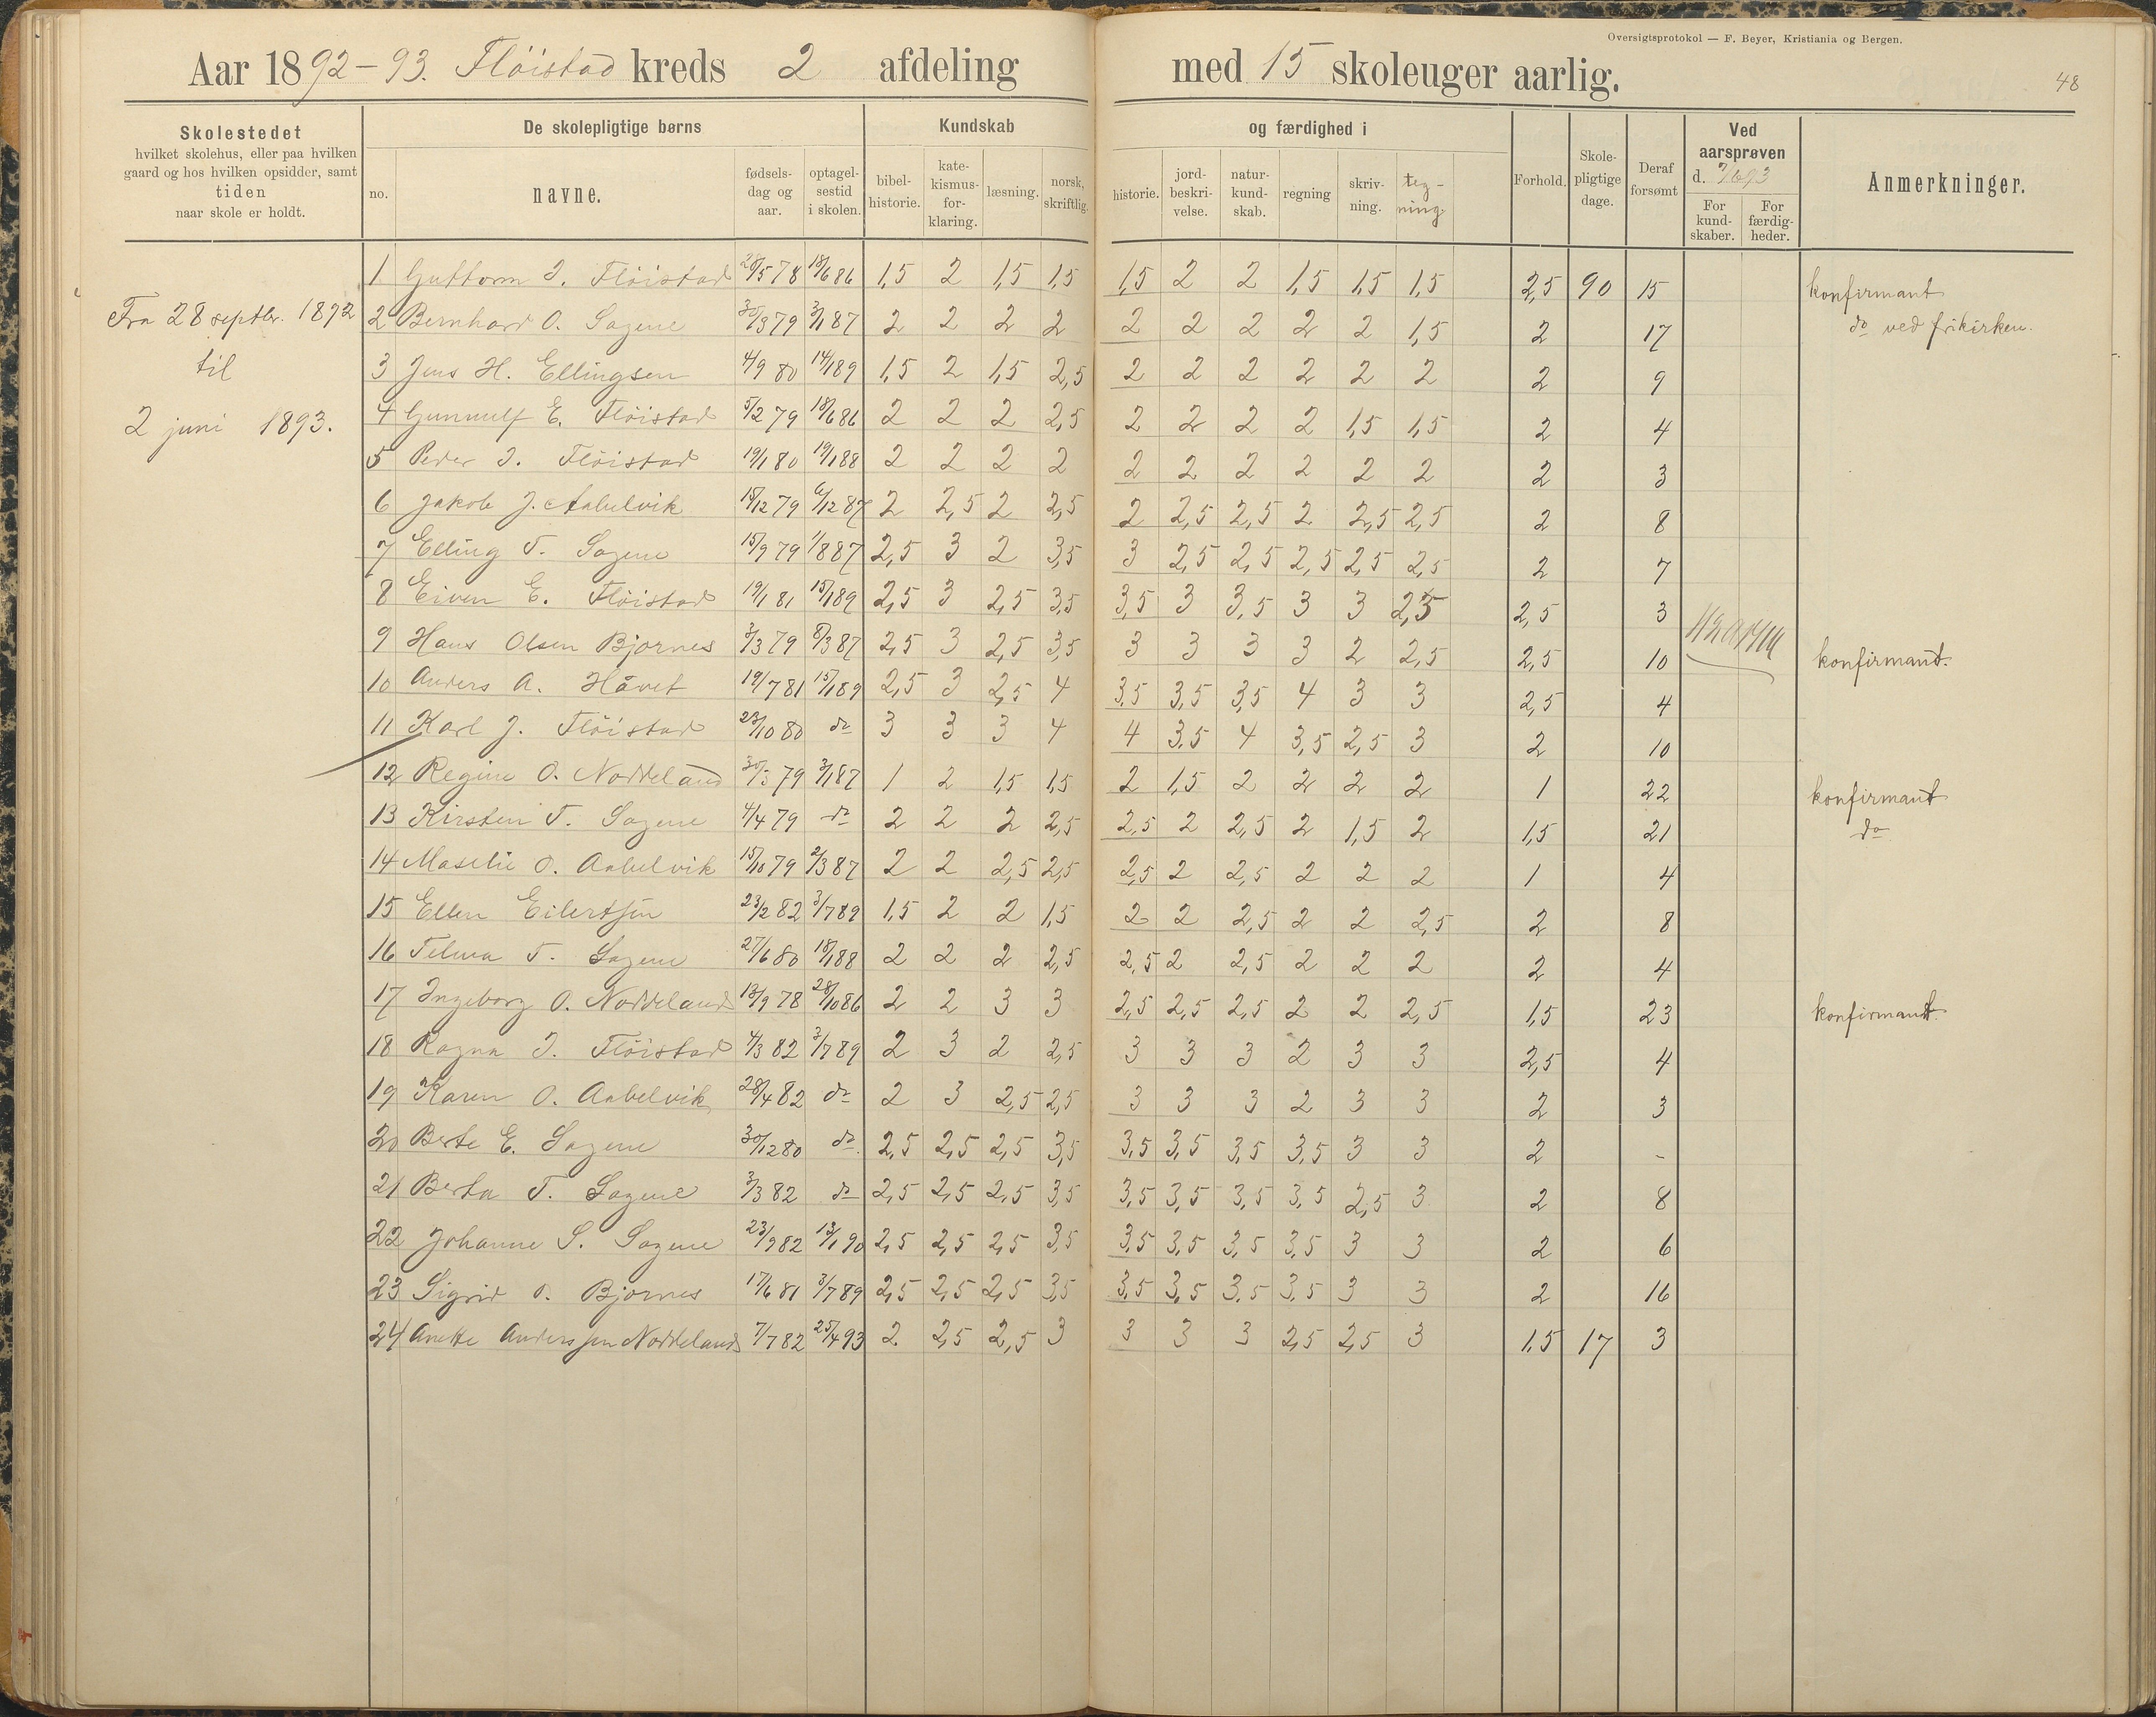 Oversigtsprotokol — F. Beyer, Kristiania og Bergen.
48
Aar 1892-93. Flöistad kreds 2 afdeling med 15 skoleuger aarlig.
Skolestedet
hvilket skolehus, eller paa hvilken
gaard og hos hvilken opsidder, samt
tiden
naar skole er holdt.
De skolepligtige børns
no. navne. fødsels-dag og aar. optagel-sestid i skolen.
Kundskab og færdighed i
bibel-historie. kate-kismus-for-klaring. læsning. norsk, skriftlig. historie. jord-beskri-velse. natur-kund-skab. regning skriv-ning. teg-ning.
Forhold. Skole-pligtige dage. Deraf forsømt
Ved aarsprøven d. 7/6 93
For kund-skaber. For færdig-heder.
Anmerkninger.
Fra 28 septbr. 1892
til
2 juni 1893.
1 Guttorm J. Flöistad 28/5 78 18/6 86 1,5 2 1,5 1,5 1,5 2 2 1,5 1,5 1,5 2,5 90 15 konfirmant
2 Bernhard O. Sagene 30/3 79 3/1 87 2 2 2 2 2 2 2 2 2 1,5 2 17 do ved frikirken.
3 Jens H. Ellingsen 4/9 80 14/1 89 1,5 2 1,5 2,5 2 2 2 2 2 2 2 9
4 Gunnulf E. Flöistad 5/2 79 18/6 86 2 2 2 2,5 2 2 2 2 1,5 1,5 2 4
5 Peder J. Flöistad 19/1 80 19/1 88 2 2 2 2 2 2 2 2 2 2 2 3
6 Jakob J. Aabelvik 15/12 79 6/12 87 2 2,5 2 2,5 2 2,5 2,5 2 2,5 2,5 2 8
7 Elling T. Sagene 15/9 79 1/8 87 2,5 3 2 3,5 3 2,5 2,5 2,5 2,5 2,5 2 7
8 Eiven E. Flöistad 19/1 81 15/1 89 2,5 3 2,5 3,5 3,5 3 3,5 3 3 2,5 2,5 3
9 Hans Olsen Bjornes 3/3 79 8/3 87 2,5 3 2,5 3,5 3 3 3 3 2 2,5 2,5 10 konfirmant.
10 Anders A. Håvet 19/7 81 15/1 89 2,5 3 2,5 4 3,5 3,5 3,5 4 3 3 2,5 4
11 Karl J. Flöistad 23/10 80 do 3 3 3 4 4 3,5 4 3,5 2,5 3 2 10
12 Regine O. Noddeland 30/3 79 3/1 87 1 2 1,5 1,5 2 1,5 2 2 2 2 1 22 konfirmant
13 Kirsten T. Sagene 4/4 79 do 2 2 2 2,5 2,5 2 2,5 2 1,5 2 1,5 21 do
14 Maselie O. Aabelvik 15/10 79 2/3 87 2 2 2,5 2,5 2,5 2 2,5 2 2 2 1 4
15 Ellen Eilertsen 23/2 82 3/7 89 1,5 2 2 1,5 2 2 2,5 2 2 2,5 2 8
16 Telma T. Sagene 27/6 80 18/1 88 2 2 2 2,5 2,5 2 2,5 2 2 2 2 4
17 Ingeborg O. Noddeland 13/9 78 28/10 86 2 2 3 3 2,5 2,5 2,5 2 2 2,5 1,5 23 konfirmant.
18 Ragna J. Flöistad 4/3 82 3/7 89 2 3 2 2,5 3 3 3 2 3 3 2,5 4
19 Karen O. Aabelvik 28/4 82 do 2 3 2,5 2,5 3 3 3 2 3 3 2 3
20 Berte E. Sagene 30/12 80 do 2,5 2,5 2,5 3,5 3,5 3,5 3,5 3,5 3 3 2 -
21 Berta T. Sagene 3/3 82 do 2,5 2,5 2,5 3,5 3,5 3,5 3,5 3,5 2,5 3 2 8
22 Johanne S. Sagene 23/9 82 13/1 90 2,5 2,5 2,5 3,5 3,5 3,5 3,5 3,5 3 3 2 6
23 Sigrid O. Bjornes 17/6 81 3/7 89 2,5 2,5 2,5 3,5 3,5 3,5 3,5 3,5 3 3 2 16
24 Anette Anderssen Noddeland 7/7 82 25/4 93 2 2,5 2,5 3 3 3 3 2,5 2,5 3 1,5 17 3